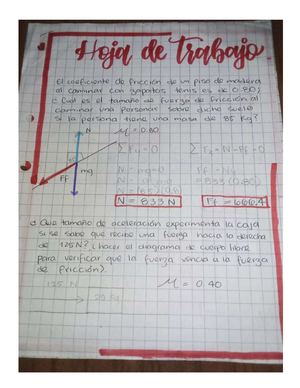 Hoja de Trabajo
El coeficiente de fricción de un piso de madera
al caminar con zapatos tenis es de 0.80,
¿Cuál es el tamaño de fuerza de fricción al
caminar una persona sobre dicho suelo
si la persona tiene una masa de 85 kg?
N
μ = 0.80
mg
Ff
N - mg = 0
N = 833 N
Ff = 666.4
¿Que tamaño de aceleración experimenta la caja
si se sabe que recibe una fuerza hacia la derecha
de 125N? (hacer el diagrama de cuerpo libre
para verificar que la fuerza vencia a la fuerza
de fricción)
125 N
μ = 0.40